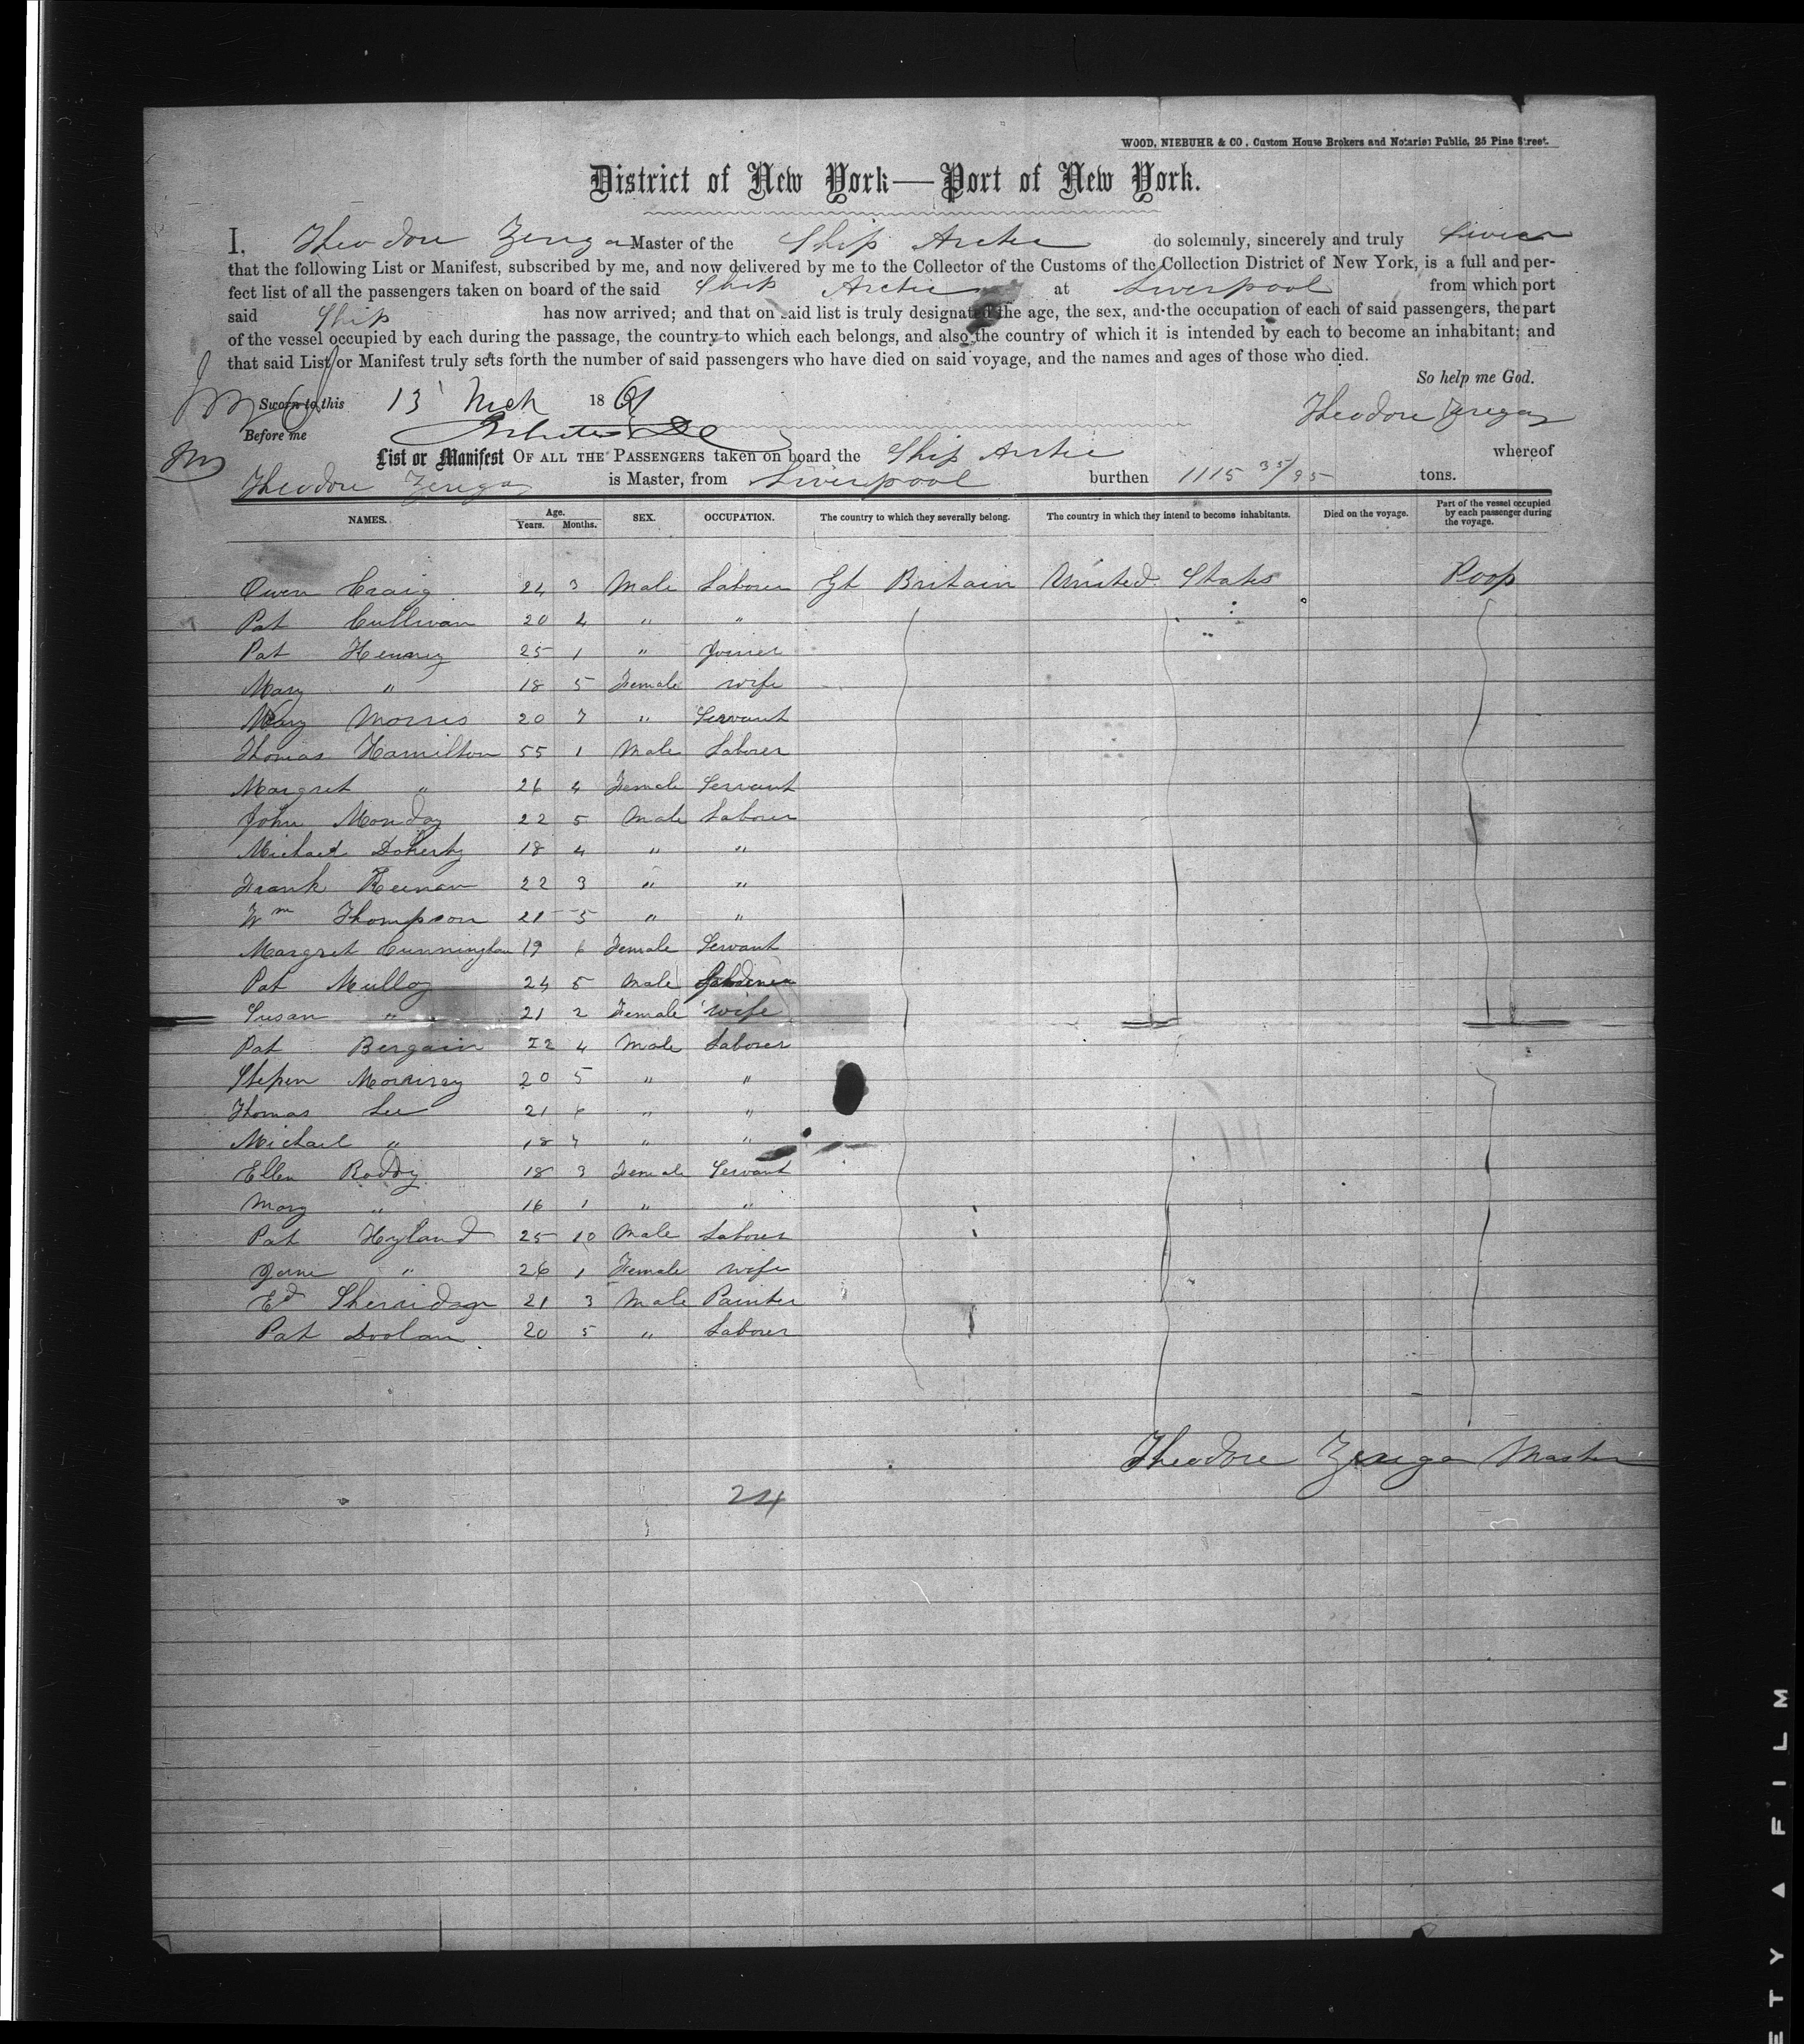 WOOD, NIEBUHR & CO, Custom House Brokers and Notaries Public, 25 Pine Street.
District of New York—Port of New York.
I, Theodore Zerega Master of the Ship Arctic do solemnly, sincerely and truly
that the following List or Manifest, subscribed by me, and now delivered by me to the Collector of the Customs of the Collection District of New York, is a full and per-
fect list of all the passengers taken on board of the said Ship Arctic at Liverpool from which port
said Ship has now arrived; and that on said list is truly designated the age, the sex, and the occupation of each of said passengers, the part
of the vessel occupied by each during the passage, the country to which each belongs, and also the country of which it is intended by each to become an inhabitant; and
that said List or Manifest truly sets forth the number of said passengers who have died on said voyage, and the names and ages of those who died.
So help me God.
Sworn to this 13 Mch 1861 Theodore Zerega
Before me
List or Manifest OF ALL THE PASSENGERS taken on board the Ship Arctic whereof
Theodore Zerega is Master, from Liverpool burthen 1115 35/95 tons.
NAMES. Age. Years. Months. SEX. OCCUPATION. The country to which they severally belong. The country in which they intend to become inhabitants. Died on the voyage. Part of the vessel occupied by each passenger during the voyage.
Owen Craig 24 3 Male Laborer Gt Britain United States Poop
Pat Cullivan 20 2 " "
Pat Henery 25 1 " Joiner
Mary " 18 5 Female wife
Mary Morris 20 7 " Servant
Thomas Hamilton 55 1 Male Laborer
Margret " 26 4 Female Servant
John Monday 22 5 Male Laborer
Michael Doherty 18 4 " "
Frank Keenan 22 3 " "
Wm Thompson 21 5 " "
Margret Cunningham 19 6 Female Servant
Pat Mulloy 24 5 Male
Susan " 21 2 Female wife
Pat Bergain 22 4 Male Laborer
Stepen Morrisey 20 5 " "
Thomas Lee 21 6 " "
Michael " 18 4 " "
Ellen Roddy 18 3 Female Servant
Mary " 16 1 " "
Pat Hyland 25 10 Male Laborer
Jane " 26 1 Female wife
Ed Sheraidan 21 3 Male Painter
Pat Doolan 20 5 " Laborer
Theodore Zerega Master
24
ETY A FILM